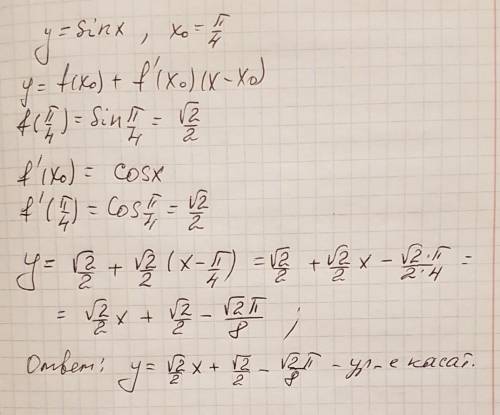 y = sinx , x₀ = π/4
y = f(x₀) + f'(x₀)(x-x₀)
f(π/4) = sin π/4 = √2/2
f'(x₀) = cosx
f'(π/4) = cos π/4 = √2/2
y = √2/2 + √2/2 (x - π/4) = √2/2 + √2/2 x - √2·π/2·4 =
= √2/2 x + √2/2 - √2π/8 ;
Ответ: y = √2/2 x + √2/2 - √2π/8 - ур-е касат.